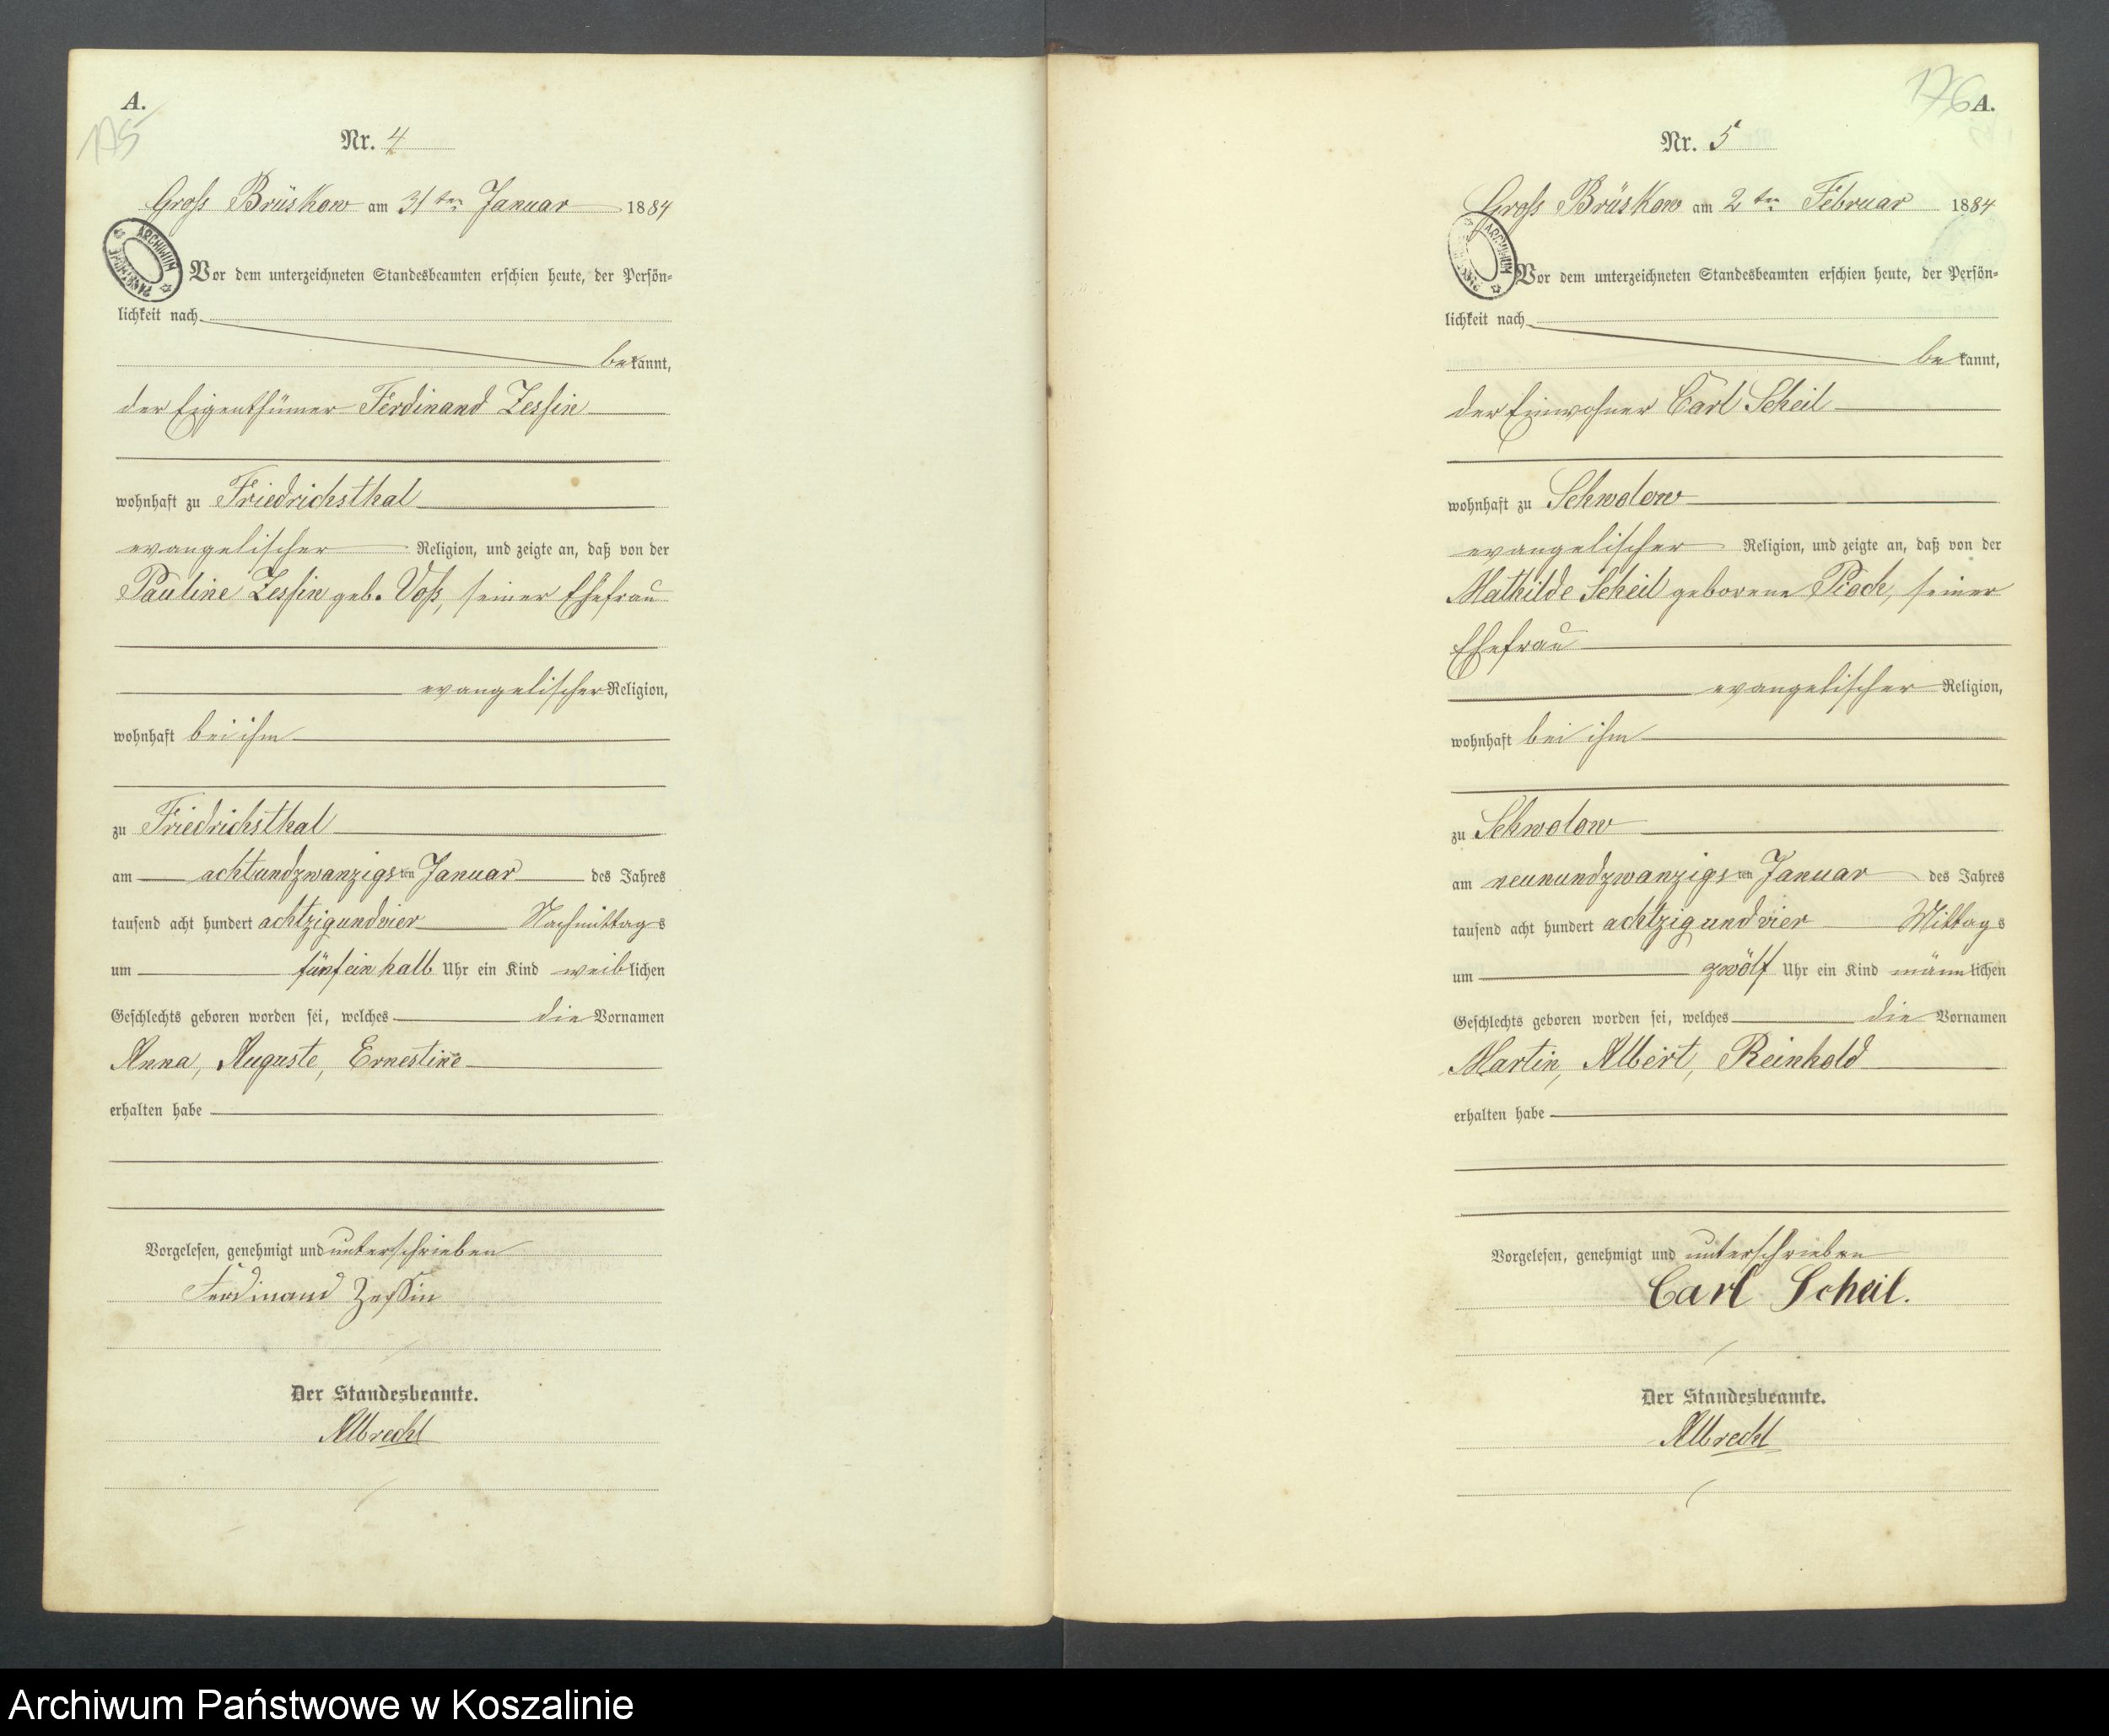 A.
175
Nr. 4
Groß Brüskow am 31ten Januar 1884
ARCHIWUM PAŃSTWOWE
Vor dem unterzeichneten Standesbeamten erschien heute, der Persön-
lichkeit nach
bekannt,
der Eigenthümer Ferdinand Zessin
wohnhaft zu Friedrichsthal
evangelischer Religion, und zeigte an, daß von der
Pauline Zessin geb. Voß, seiner Ehefrau
evangelischer Religion,
wohnhaft bei ihm
zu Friedrichsthal
am achtundzwanzigsten Januar des Jahres
tausend acht hundert achtzigundvier Nachmittags
um fünfeinhalb Uhr ein Kind weiblichen
Geschlechts geboren worden sei, welches die Vornamen
Anna, Auguste, Ernestine
erhalten habe
Vorgelesen, genehmigt und unterschrieben
Ferdinand Zessin
Der Standesbeamte.
Albrecht
176 A.
Nr. 5
Groß Brüskow am 2ten Februar 1884
ARCHIWUM
Vor dem unterzeichneten Standesbeamten erschien heute, der Persön-
lichkeit nach
bekannt,
der Einwohner Carl Scheil
wohnhaft zu Schwolow
evangelischer Religion, und zeigte an, daß von der
Mathilde Scheil geborene Pioch, seiner
Ehefrau
evangelischer Religion,
wohnhaft bei ihm
zu Schwolow
am neunundzwanzigsten Januar des Jahres
tausend acht hundert achtzigundvier Mittags
um zwölf Uhr ein Kind männlichen
Geschlechts geboren worden sei, welches die Vornamen
Martin, Albert, Reinhold
erhalten habe
Vorgelesen, genehmigt und unterschrieben
Carl Scheil.
Der Standesbeamte.
Albrecht
Archiwum Państwowe w Koszalinie